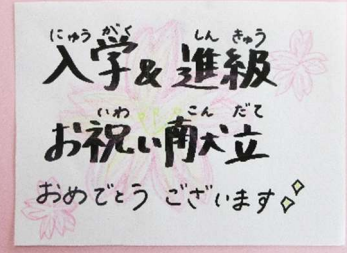 にゅう がく しん きゅう
入学&進級
いわ こん だて
お祝い献立
おめでとう ございます